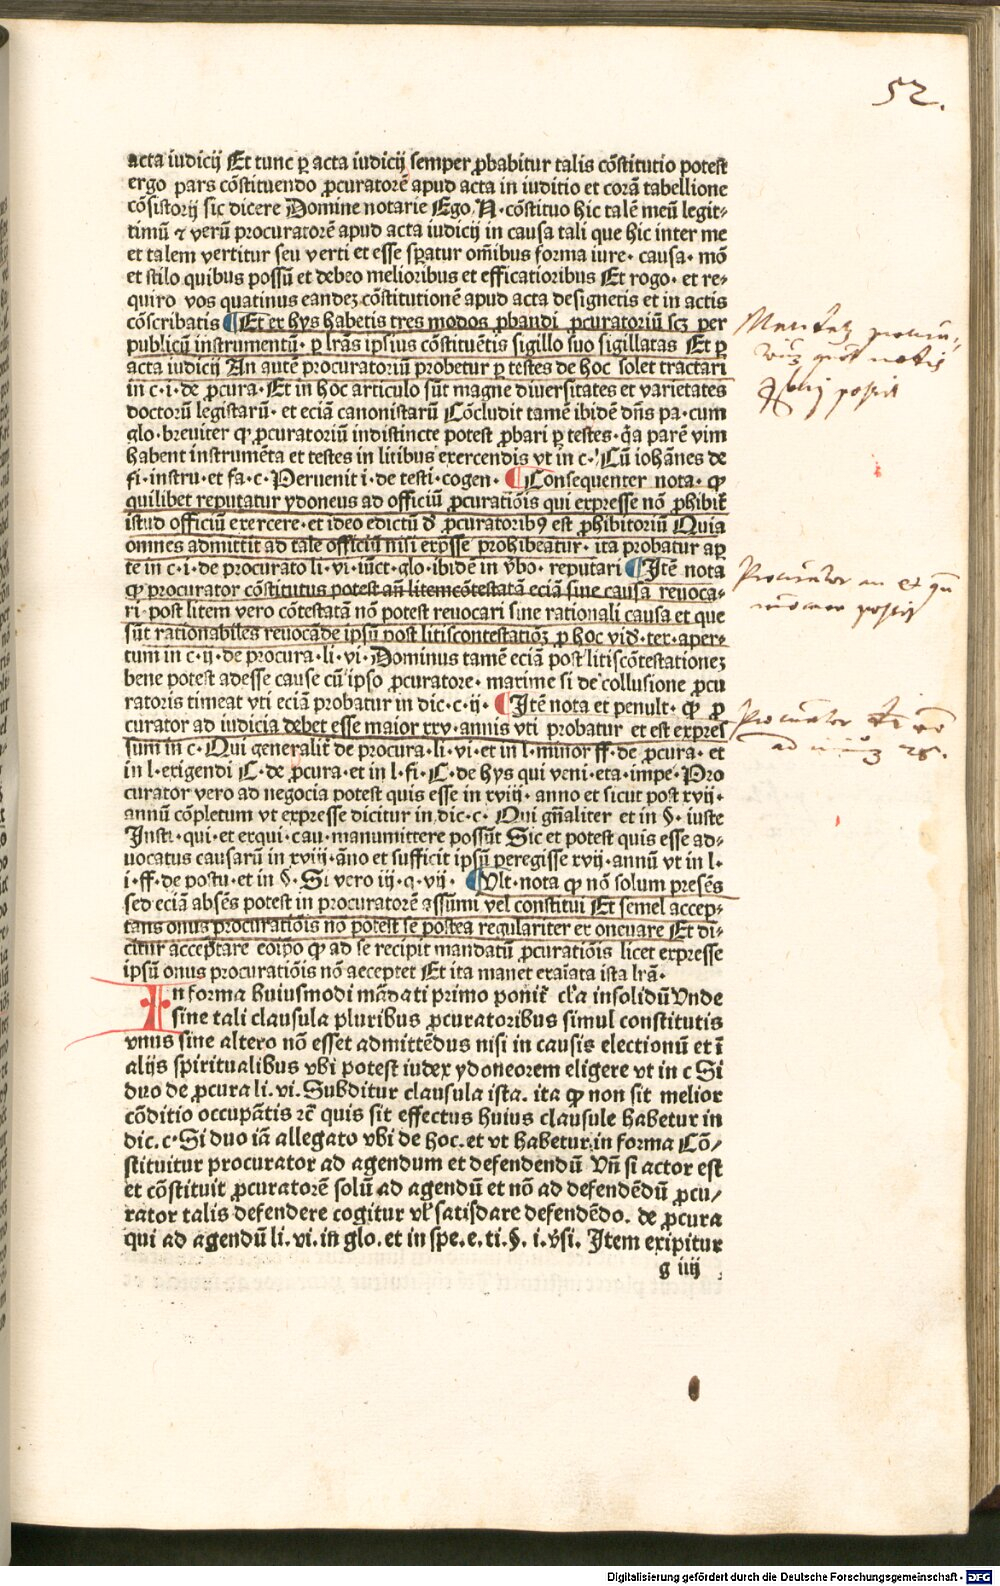 52.
acta iudicij Et tunc ꝑ acta iudicij semper ꝓbabitur talis cōstitutio potest
ergo pars cōstituendo ꝓcuratorē apud acta in iuditio et corā tabellione
cōsistorij sic dicere Domine notarie Ego. N. cōstituo hic talē meū legit⸗
timū ⁊ verū procuratorē apud acta iudicij in causa tali que hic inter me
et talem vertitur seu verti et esse sꝑatur om̄ibus forma iure· causa· mō
et stilo quibus possū et debeo melioribus et efficatioribus Et rogo· et re⸗
quiro vos quatinus eandez cōstitutionē apud acta designetis et in actis
cōscribatis ¶ Et ex hys habetis tres modos ꝓbandi ꝓcuratoriū scꝫ per
publicū instrumentū· ꝑ lrās ipsius cōstituētis sigillo suo sigillatas Et ꝑ
acta iudicij An autē procuratoriū probetur ꝑ testes de hoc solet tractari
in c·i·de ꝓcura·Et in hoc articulo sūt magne diuersitates et varietates
doctorū legistarū·et eciā canonistarū Cōcludit tamē ibidē dn̄s pa·cum
glo·breuiter ꝙ ꝓcuratoriū indistincte potest ꝓbari ꝑ testes·q̄a parē vim
habent instrumēta et testes in litibus exercendis vt in c·Cū iohānes de
fi·instru·et fa·c·Peruenit i·de testi·cogen· ¶ Consequenter nota· ꝙ
quilibet reputatur ydoneus ad officiū ꝓcuratiōis qui expresse nō ꝓhibit̄
istud officiū exercere·et ideo edictū d̄ ꝓcuratoribꝰ est ꝓhibitoriū Quia
omnes admittit ad tale officiū nisi exp̄sse prohibeatur· ita probatur aꝑ
te in c·i·de procurato li·vi·iūct·glo·ibidē in v̄bo·reputari ¶ Itē nota
ꝙ procurator cōstitutus potest an̄ litemcōtestatā eciā sine causa reuoca⸗
ri·post litem vero cōtestatā nō potest reuocari sine rationali causa et que
sūt rationabiles reuocāde ipsū post litiscontestatiōꝫ ꝑ hoc vid̄·ter·aper⸗
tum in c·ij·de procura·li·vi·Dominus tamē eciā post litiscōtestationez
bene potest adesse cause cū ipso ꝓcuratore·maxime si de collusione ꝓcu
ratoris timeat vti eciā probatur in dic·c·ij· ¶ Itē nota et penult·ꝙ ꝓ
curator ad iudicia debet esse maior xxv·annis vti probatur et est expres
sum in c·Qui generalit̄ de procura·li·vi·et in l·minor ff·de ꝓcura·et
in l·exigendi C·de ꝓcura·et in l·fi·C·de hys qui veni·eta·impe·Pro
curator vero ad negocia potest quis esse in xviij·anno et sicut post xvij·
annū cōpletum vt expresse dicitur in dic·c· Qui gn̄aliter et in §· iuste
Insti·qui·et exqui·cau·manumittere possūt Sic et potest quis esse ad⸗
uocatus causarū in xviij·āno et sufficit ipsū peregisse xvij·annū vt in l·
i·ff·de postu·et in §·Si vero iij·q·vij· ¶ Vlt·nota ꝙ nō solum presēs
sed eciā absēs potest in procuratorē assumi vel constitui Et semel accep⸗
tans onus procuratiōis nō potest se postea regulariter exonerare Et di⸗
citur acceptare eoipo ꝙ ad se recipit mandatū ꝓcuratiōis licet expresse
ipsū onus procuratiōis nō acceptet Et ita manet exaīata ista lrā·
In forma huiusmodi mādati primo ponit̄ cl̄a insolidū Vnde
sine tali clausula pluribus ꝓcuratoribus simul constitutis
vnus sine altero nō esset admittēdus nisi in causis electionū et ī
alijs spiritualibus vbi potest iudex ydoneorem eligere vt in c Si
duo de ꝓcura li. vi. Subditur clausula ista. ita ꝙ non sit melior
cōditio occupātis rc̄ quis sit effectus huius clausule habetur in
dic. c. Si duo iā allegato vbi de hoc. et vt habetur in forma Cō/
stituitur procurator ad agendum et defendendū Vn̄ si actor est
et cōstituit ꝓcuratorē solū ad agendū et nō ad defendēdū ꝓcu/
rator talis defendere cogitur vl̄ satisdare defendēdo. de ꝓcura
qui ad agendū li. vi. in glo. et in spe. e. ti. §. i. v̄si. Item exipitur
g iiij
Procurator
Procurator
Digitalisierung gefördert durch die Deutsche Forschungsgemeinschaft - DFG